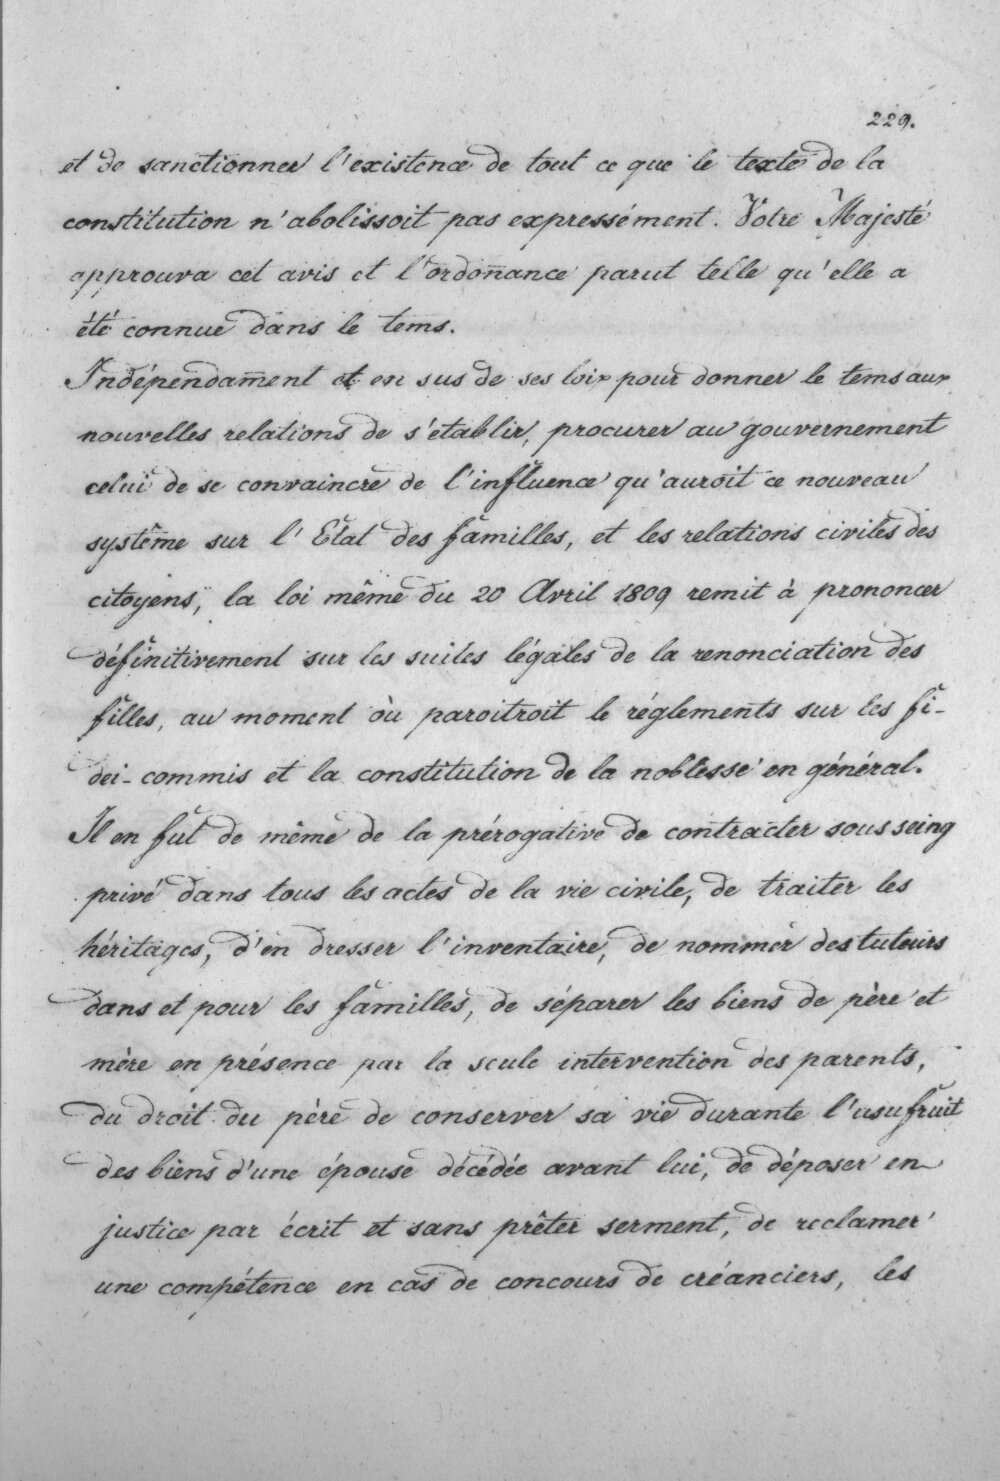 229.
et de sanctionner l'existence de tout ce que le texte de la
constitution n'abolissoit pas expressément. Votre Majesté
approuva cet avis et l'ordon̄ance parut telle qu'elle a
été connue dans le tems.
Indépendam̄ent et en sus de ses loix pour donner le tems aux
nouvelles relations de s'etablir, procurer au gouvernement
celui de se convaincre de l'influence qu'auroit ce nouveau
systême sur l'Etat des familles, et les relations civiles des
citoyens, la loi même du 20 Avril 1809 remit à prononcer
définitivement sur les suites légales de la renonciation des
filles, au moment où paroitroit le réglements sur les fi-
dei-commis et la constitution de la noblesse en général.
Il en fut de même de la prérogative de contracter sous seing
privé dans tous les actes de la vie civile, de traiter les
héritages, d'en dresser l'inventaire, de nommer des tuteurs
dans et pour les familles, de séparer les biens de père et
mère en présence par la seule intervention des parents,
du droit du père de conserver sa vie durante l'usufruit
des biens d'une épouse décédée avant lui, de déposer en
justice par écrit et sans prêter serment, de reclamer
une compétence en cas de concours de créanciers, les